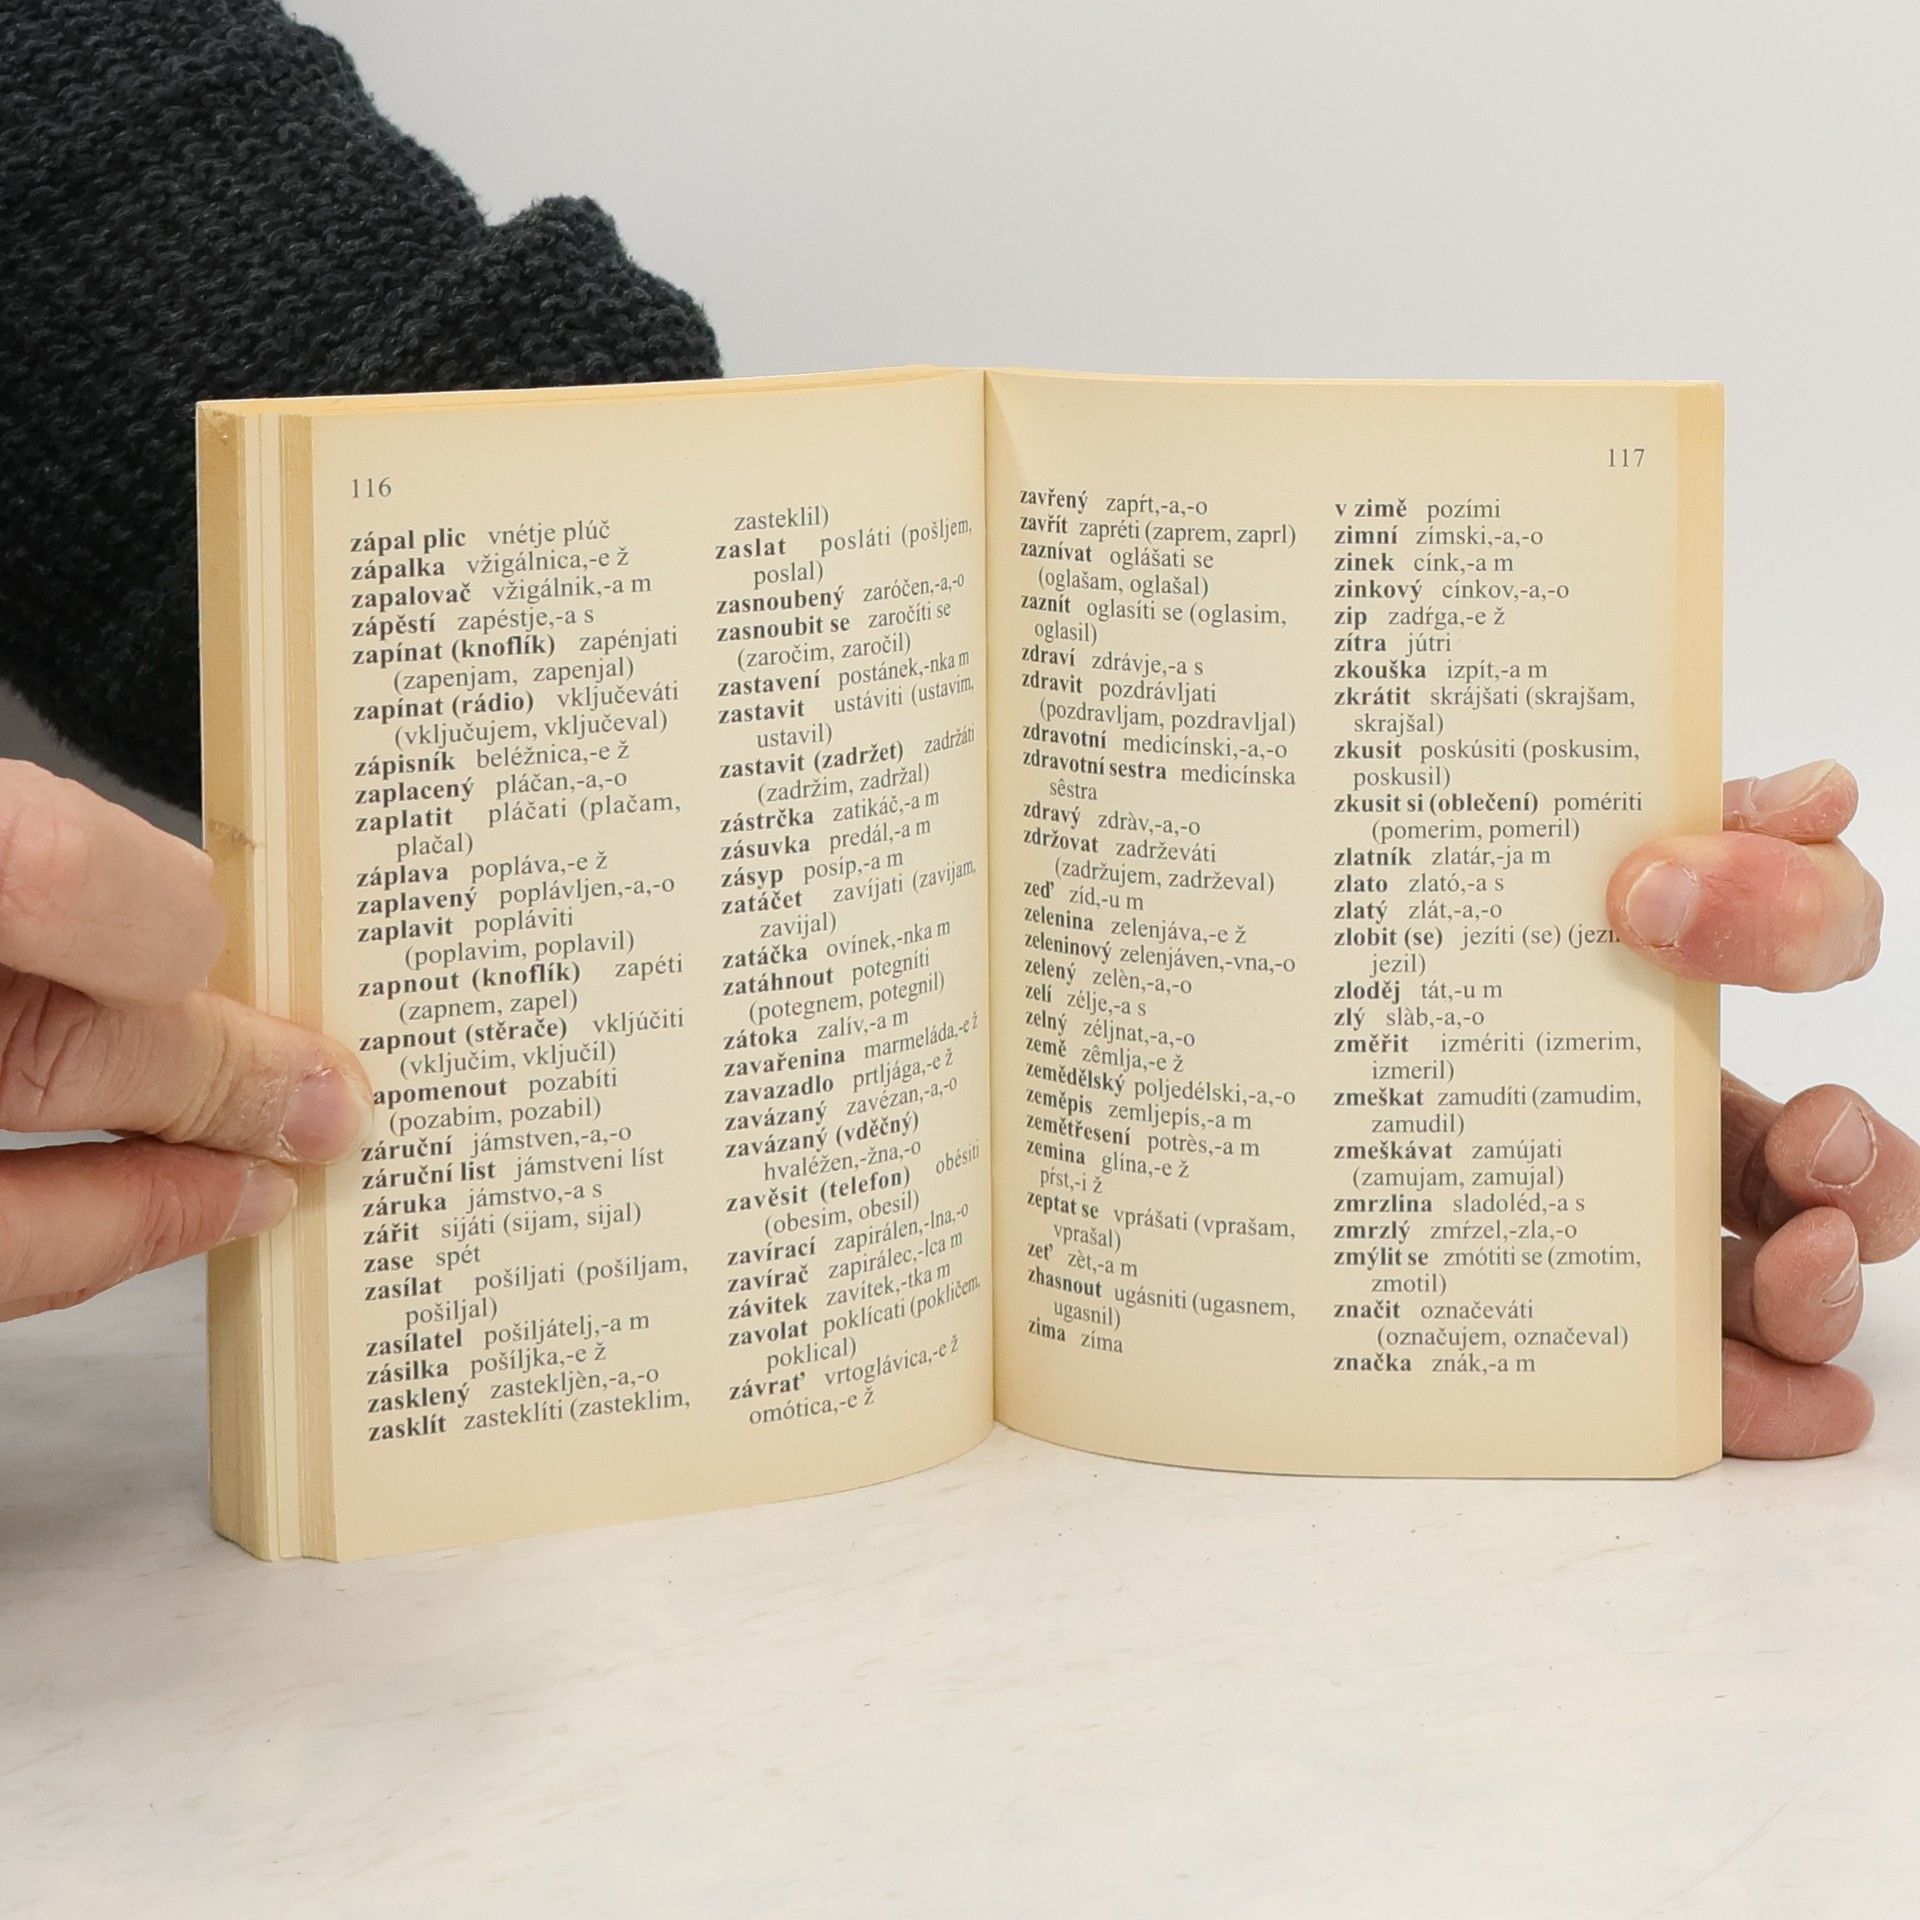 116
zápal plic vnétje plúč
zápalka vžigálnica,-e ž
zapalovač vžigálnik,-a m
zápěstí zapéstje,-a s
zapínat (knoflík) zapénjati
(zapenjam, zapenjal)
zapínat (rádio) vključeváti
(vključujem, vključeval)
zápisník beléžnica,-e ž
zaplacený pláčan,-a,-o
zaplatit pláčati (plačam,
plačal)
záplava popláva,-e ž
zaplavený poplávljen,-a,-o
zaplavit popláviti
(poplavim, poplavil)
zapnout (knoflík) zapéti
(zapnem, zapel)
zapnout (stěrače) vkljúčiti
(vključim, vključil)
apomenout pozabíti
(pozabim, pozabil)
záruční jámstven,-a,-o
záruční list jámstveni líst
záruka jámstvo,-a s
zářit sijáti (sijam, sijal)
zase spét
zasílat pošíljati (pošiljam,
pošiljal)
zasílatel pošiljátelj,-a m
zásilka pošíljka,-e ž
zasklený zastekljèn,-a,-o
zasklít zasteklíti (zasteklim,
zasteklil)
zaslat posláti (pošljem,
poslal)
zasnoubený zaróčen,-a,-o
zasnoubit se zaročíti se
(zaročim, zaročil)
zastavení postánek,-nka m
zastavit ustáviti (ustavim,
ustavil)
zastavit (zadržet) zadržáti
(zadržim, zadržal)
zástrčka zatikáč,-a m
zásuvka predál,-a m
zásyp posíp,-a m
zatáčet zavíjati (zavijam,
zavijal)
zatáčka ovínek,-nka m
zatáhnout potegníti
(potegnem, potegnil)
zátoka zalív,-a m
zavařenina marmeláda,-e ž
zavazadlo prtljága,-e ž
zavázaný zavézan,-a,-o
zavázaný (vděčný)
hvaléžen,-žna,-o
zavěsit (telefon) obésiti
(obesim, obesil)
zavírací zapirálen,-lna,-o
zavírač zapirálec,-lca m
závitek zavítek,-tka m
zavolat poklícati (pokličem,
poklical)
závrať vrtoglávica,-e ž
omótica,-e ž
117
zavřený zapŕt,-a,-o
zavřít zapréti (zaprem, zaprl)
zaznívat oglášati se
(oglašam, oglašal)
zaznít oglasíti se (oglasim,
oglasil)
zdraví zdrávje,-a s
zdravit pozdrávljati
(pozdravljam, pozdravljal)
zdravotní medicínski,-a,-o
zdravotní sestra medicínska
sêstra
zdravý zdràv,-a,-o
zdržovat zadrževáti
(zadržujem, zadrževal)
zeď zíd,-u m
zelenina zelenjáva,-e ž
zeleninový zelenjáven,-vna,-o
zelený zelèn,-a,-o
zelí zélje,-a s
zelný zéljnat,-a,-o
země zêmlja,-e ž
zemědělský poljedélski,-a,-o
zeměpis zemljepís,-a m
zemětřesení potrès,-a m
zemina glína,-e ž
pŕst,-i ž
zeptat se vprášati (vprašam,
vprašal)
zeť zèt,-a m
zhasnout ugásniti (ugasnem,
ugasnil)
zima zíma
v zimě pozími
zimní zímski,-a,-o
zinek cínk,-a m
zinkový cínkov,-a,-o
zip zadŕga,-e ž
zítra jútri
zkouška izpít,-a m
zkrátit skrájšati (skrajšam,
skrajšal)
zkusit poskúsiti (poskusim,
poskusil)
zkusit si (oblečení) pomériti
(pomerim, pomeril)
zlatník zlatár,-ja m
zlato zlató,-a s
zlatý zlát,-a,-o
zlobit (se) jezíti (se)
jezil)
zloděj tát,-u m
zlý slàb,-a,-o
změřit izmériti (izmerim,
izmeril)
zmeškat zamudíti (zamudim,
zamudil)
zmeškávat zamújati
(zamujam, zamujal)
zmrzlina sladoléd,-a s
zmrzlý zmŕzel,-zla,-o
zmýlit se zmótiti se (zmotim,
zmotil)
značit označeváti
(označujem, označeval)
značka znák,-a m